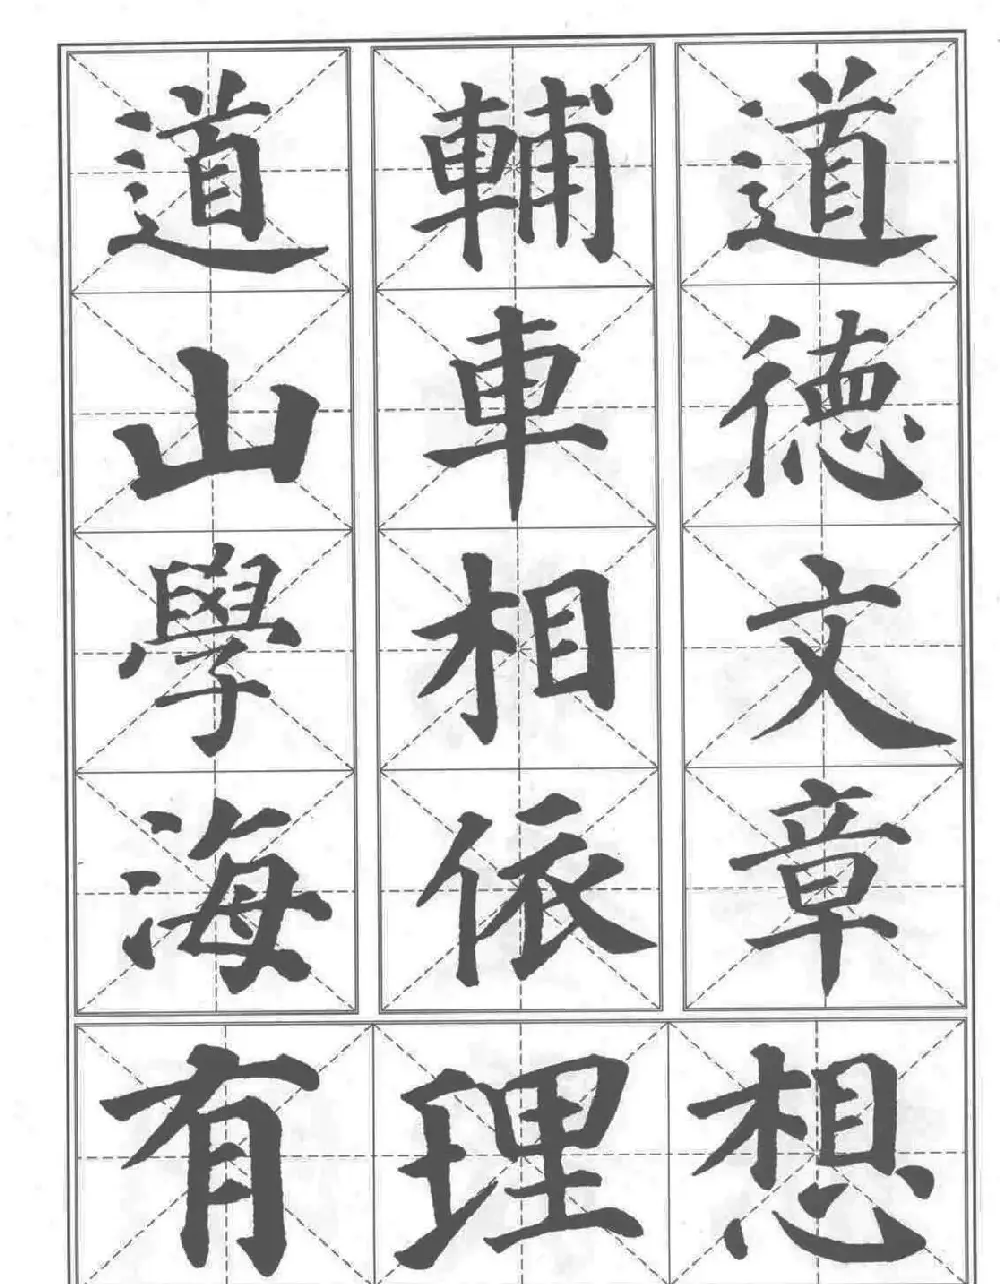 道德文章
輔車相依
道山學海
有理想